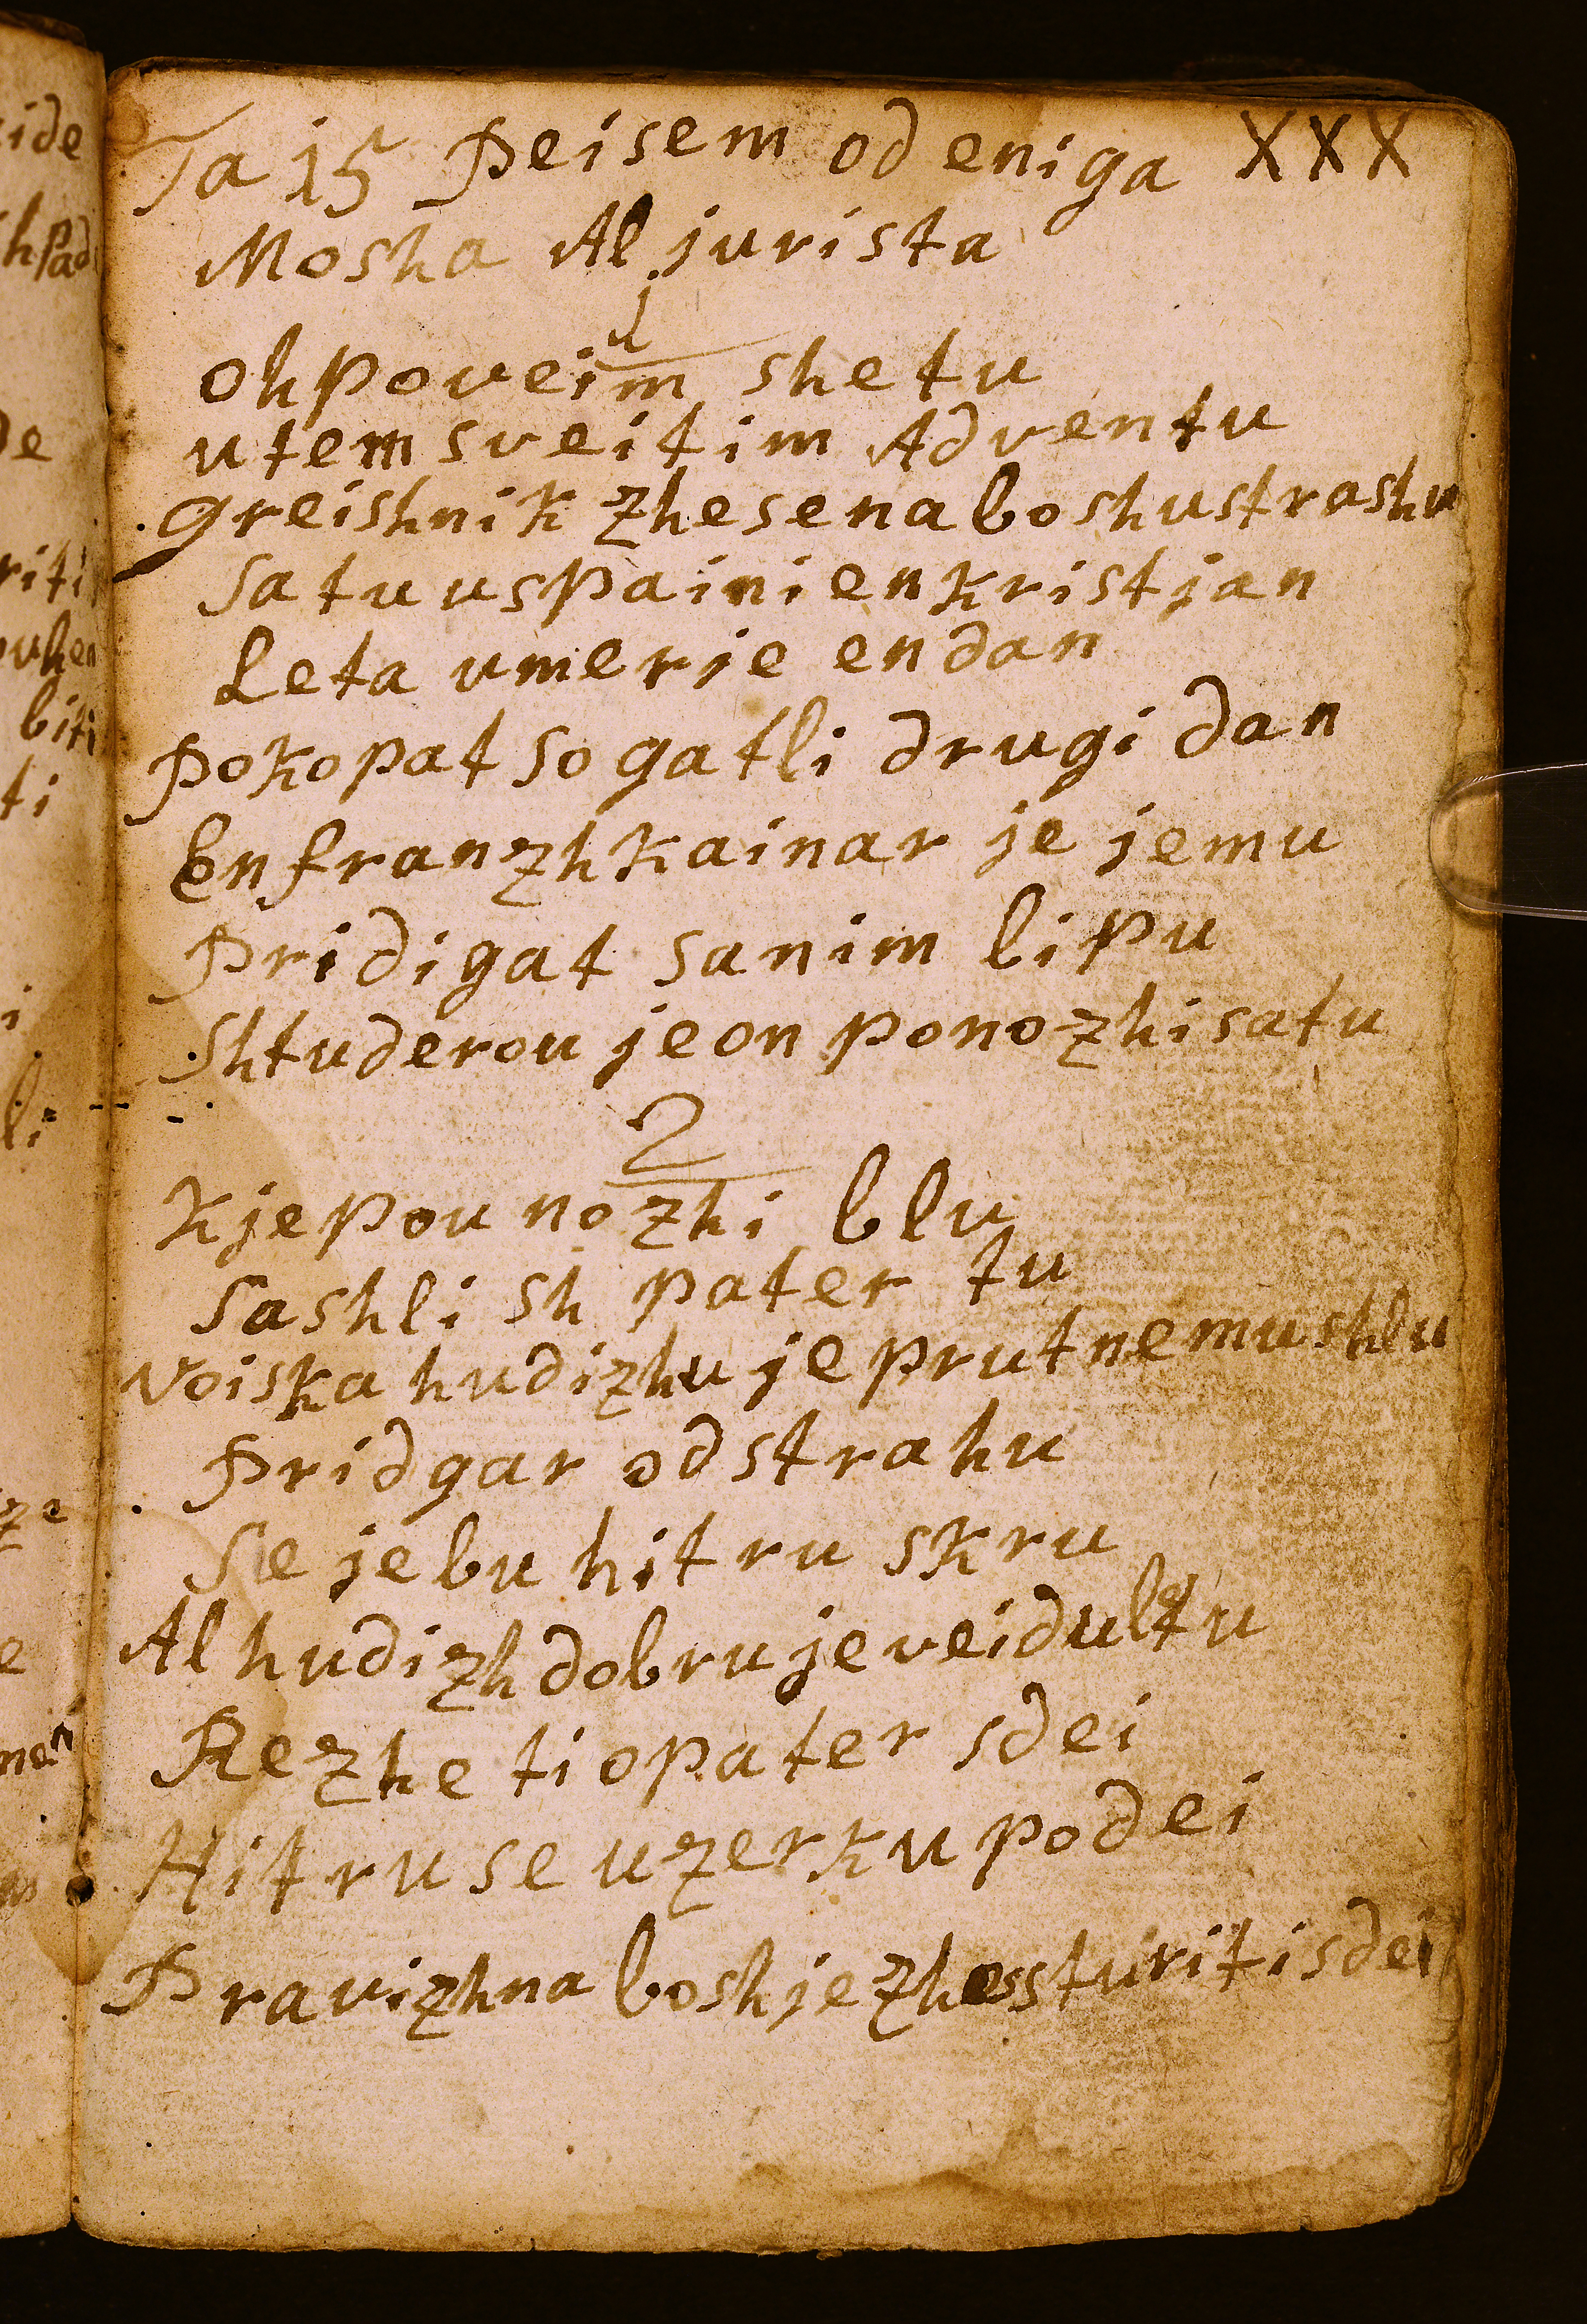 Ta 15 Peisem od eniga XXX
Mosha Al jurista
1
Oh poveim she tu
utem sveitim Adventu
greishnik zhe se na boshu strashu
Sa tu uspaini en kristjan
Leta umerje en dan
Pokopat so gatli drugi dan
En franzhkainar je jemu
Pridigat sa nim lipu
Shtuderou je on ponozhi sa tu
2
Kje pounozhi blu
Sashlish pater tu
Voiska hudizhu je prut nemu shlu
Pridgar od strahu
Se je bu hitru skru
Al hudizh dobru je veidu l tu
Rezhe ti o pater sdei
Hitru se u zerku podei
Pravizhna boshje zhe sturiti sdei